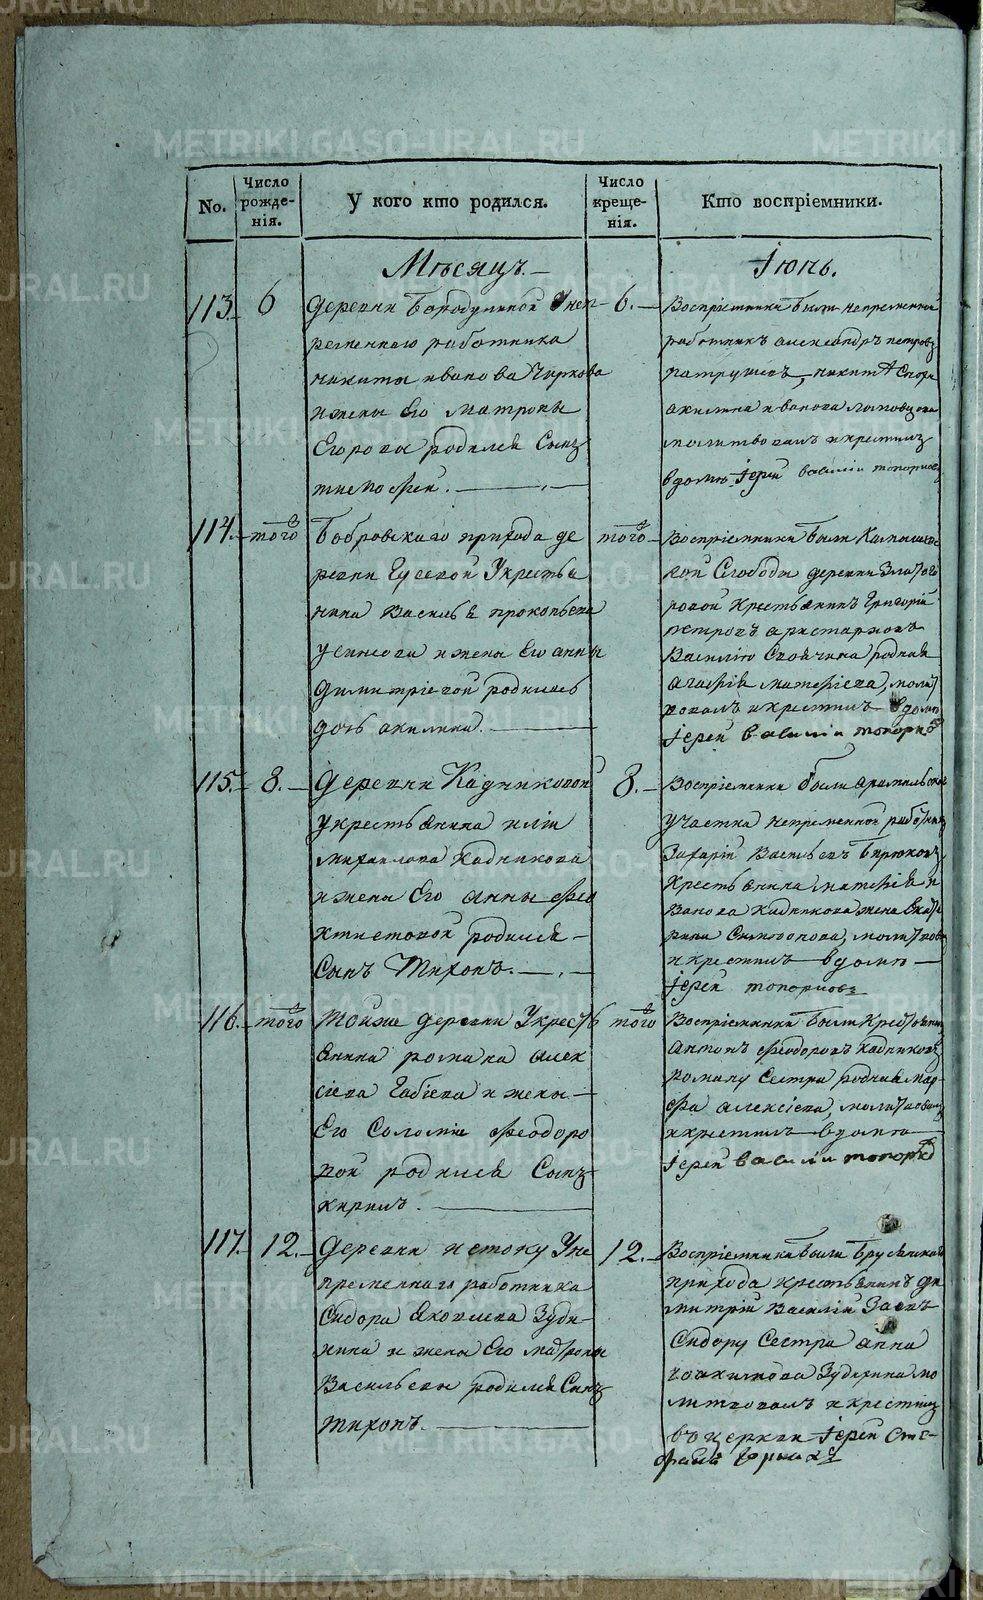 No.
Число рожденія.
У кого кто родился.
Число крещенія.
Кто воспріемники.
Мѣсяцъ.
Іюнь.
113.
6
деревни Бородулиной У неп
ременнаго работника
никиты иванова Чиркова
и жены Его матроны
Егоровой родился Сынъ
тимофей.
6.
Воспріемники были непременной
работникъ александръ петровъ
патрушевъ, никит
акилина иванова
молитвовалъ и крестилъ
в домѣ Іерей василій топорковъ
114.
того
Бобровскаго прихода де
ревни Гусевой У кресть
нина Василья прокопьева
усинсова и жены Его анны
димитріевой родилась
дочь акилина.
того
Воспріемники были Камышевс
кой Слободы деревни Златого
ровой крестьянинъ Григорій
петровъ аристарховъ
Василію Свойчина родная
агафія матфіева, молит
вовалъ и крестилъ в домѣ
Іерей василіи топорков
115.
8.
деревни Кадниковой
у крестьянина иліи
михаилова кадникова
и жены Его анны фео
ктистовой родился
Сынъ Тихонъ.
8.
Воспріемники были арамильскаго
участка непременной работникъ
Захарій Васильевъ Бирюковъ,
крестьянина матфія и
ванова кадникова жена Екате
рина Симеонова, молитвовал
и крестилъ в домѣ
Іерей топорковъ
116.
того
тойже деревни У кресть
янина романа алек
сіева Габіева и жены
Его Соломіи феодоро
вой родился Сынъ
кирилъ.
того
Воспріемники были крестьянинъ
антонъ феодоровъ кадниковъ
роману Сестра родная мар
фа алексіева, молитвовалъ
и крестилъ в домѣ
Іерей василіи топорков
117.
12.
деревни истоку У не
пременнаго работника
Сидора яковлева Зуди
нина и жены Его матроны
Васильевы родился Сынъ
Тихонъ.
12.
Воспріемники были Брусянскаго
прихода крестьянинъ ди
митрій Василій
Сидору Сестра анна
Зударина мо
литвовалъ и крестилъ
въ церкви Іерей Сте
фанъ
METRIKI.GASO-URAL.RU